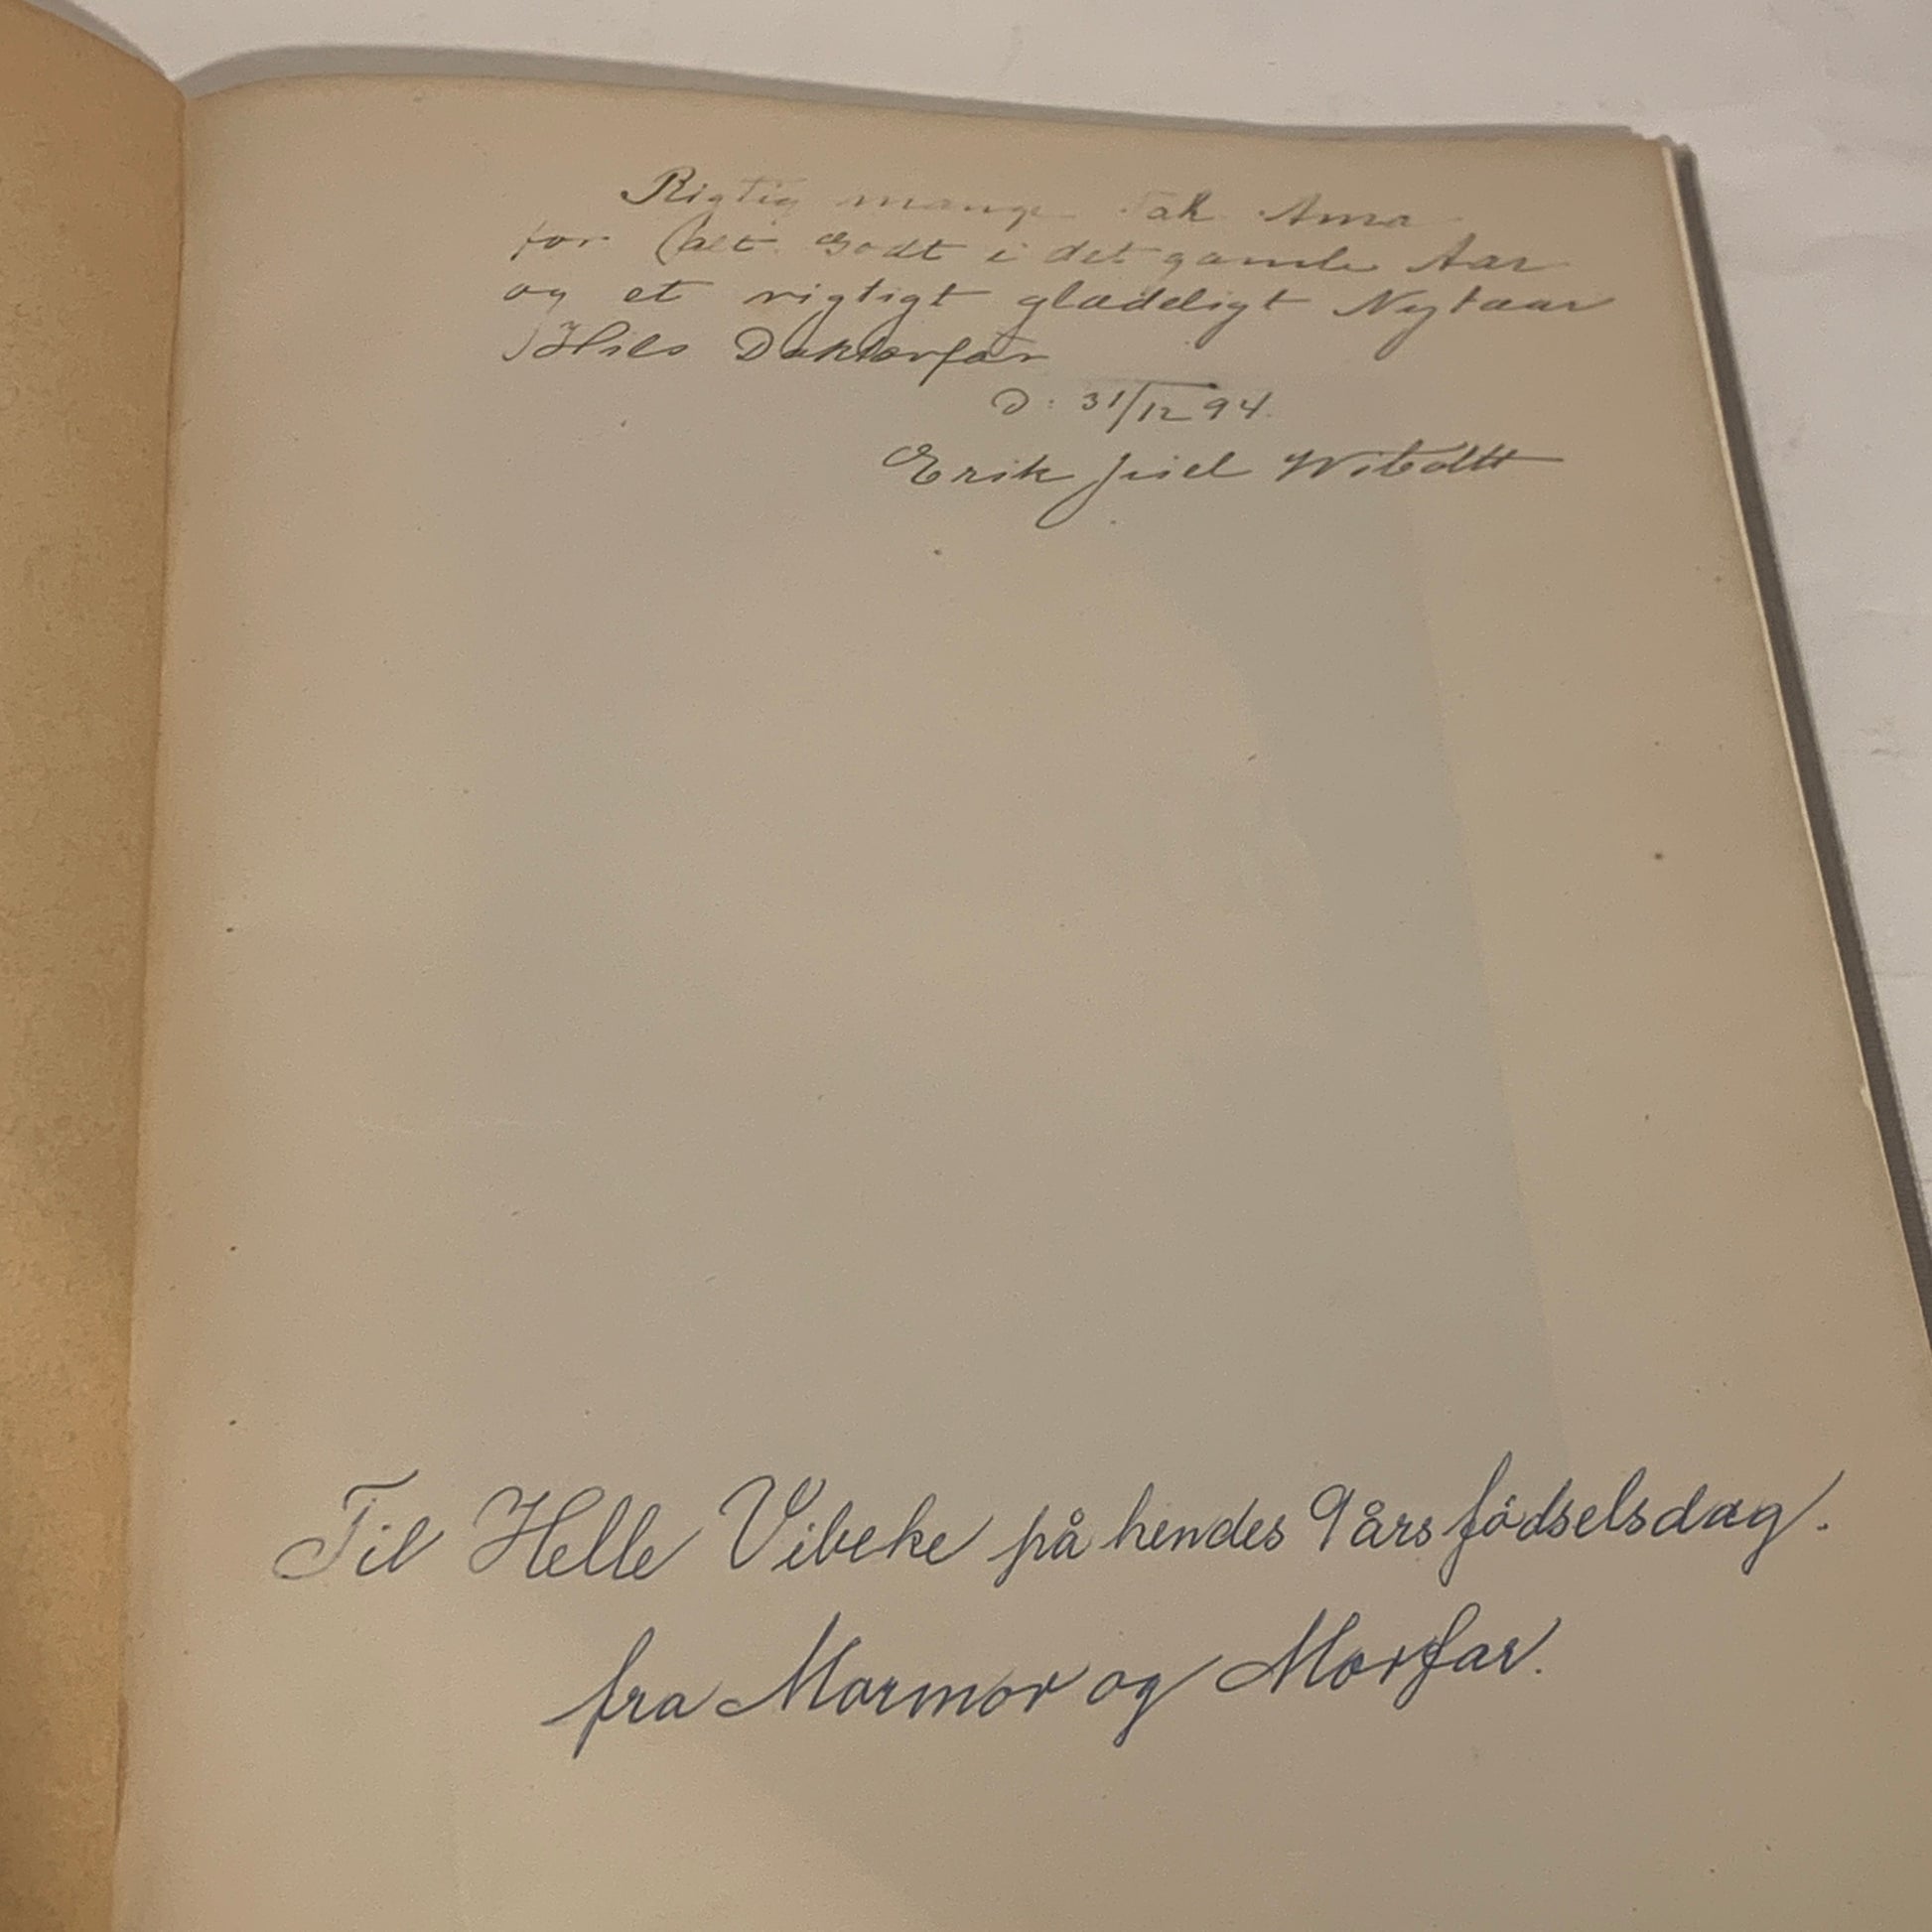 Rigtig mange Tak Ama
for alt Godt i det gamle Aar
og et rigtigt glædeligt Nytaar
Hils Doktorfar
D: 31/12 94.
Erik Wiboltt
Til Helle Vibeke på hendes 9 års fødselsdag.
fra Mormor og Morfar.